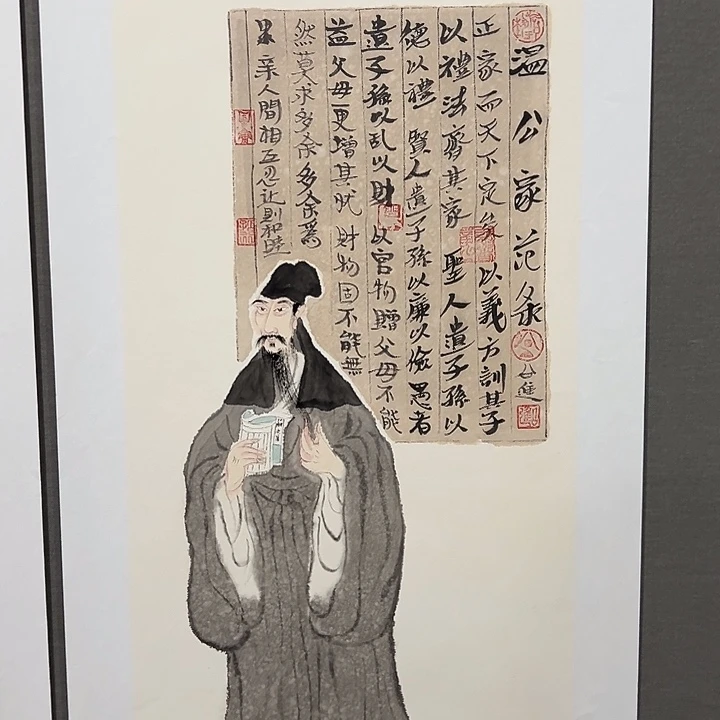 温公家范条
正家而天下定矣 以義方訓其子
以禮法齊其家 聖人遺子孫以
德以禮 賢人遺子孫以廉以儉 愚者
遺子孫以乱以財 以官物贈父母不能
益父母更增其忧 財物固不能無
然莫求多余多余為
累 亲人間相互忍让則和睦